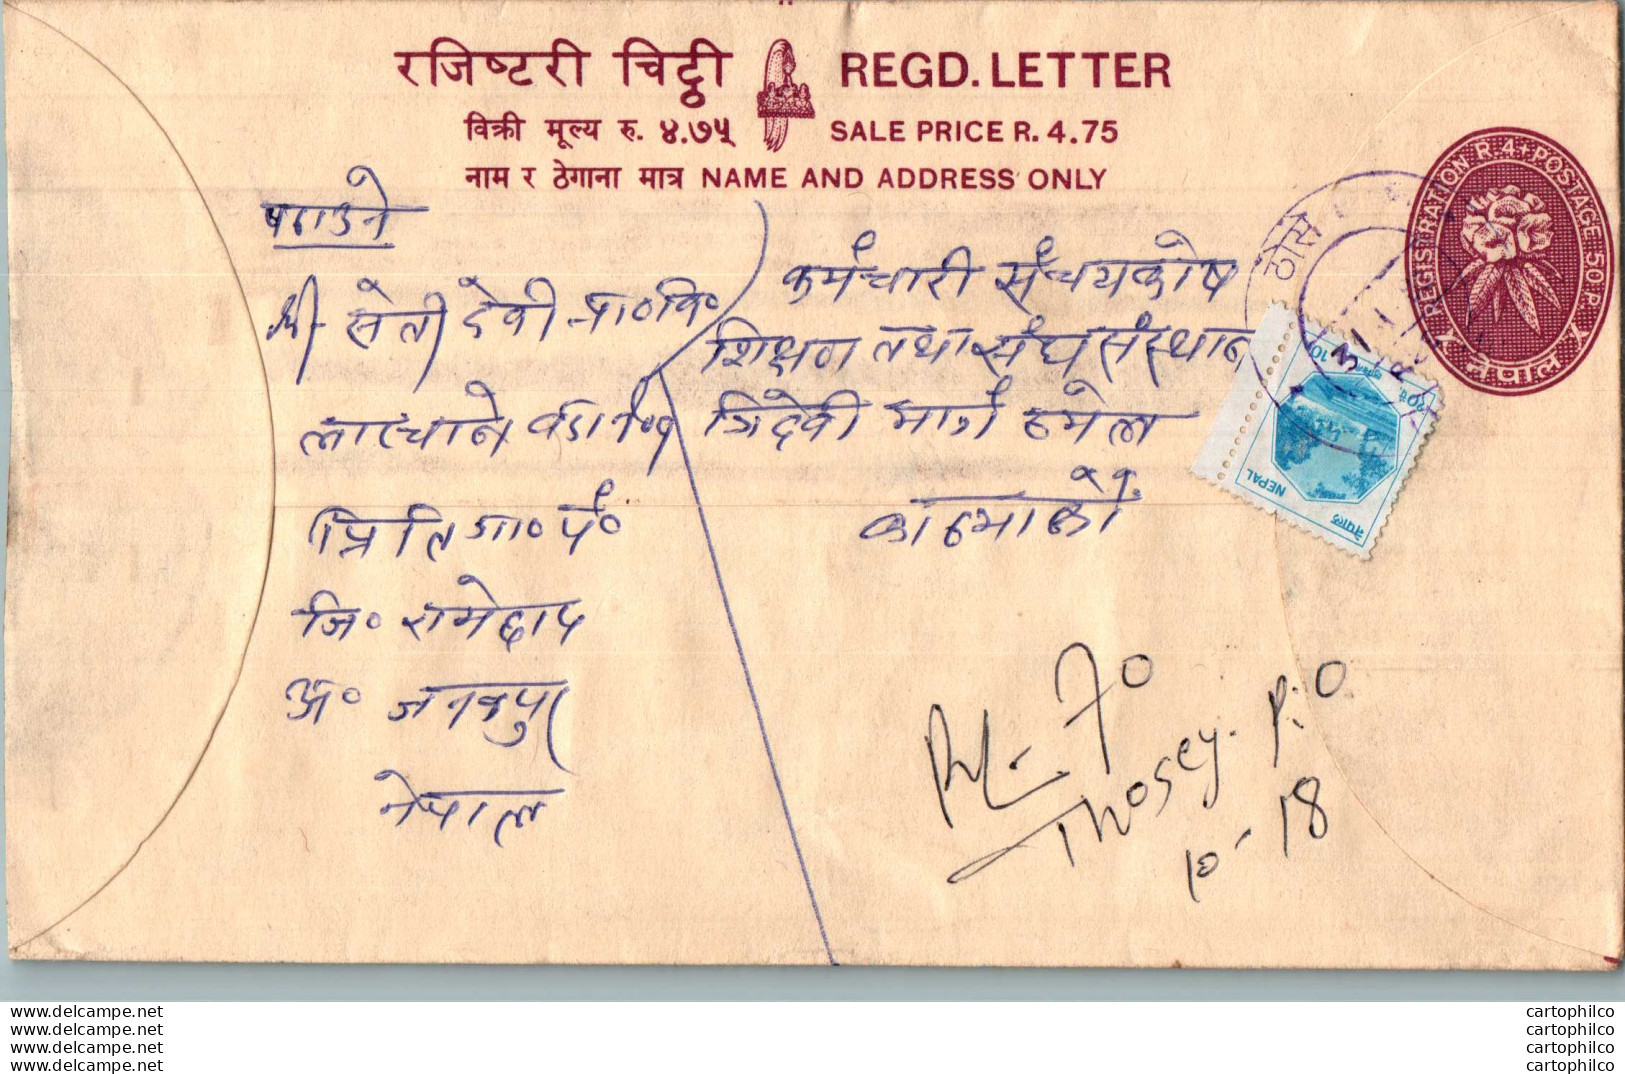 रजिष्टरी चिट्ठी REGD. LETTER
विक्री मूल्य रु. ४.७५ SALE PRICE R. 4.75
नाम र ठेगाना मात्र NAME AND ADDRESS ONLY
REGISTRATION R. 4 + POSTAGE 50 P.
नेपाल
पठाउने
श्री सेती देवी प्रा० वि०
वडा नं०
प्रिति गा० पं०
जि० रामेछाप
अं० जनकपुर
नेपाल
कर्मचारी संचयकोष
शिक्षण तथा संघ संस्थान
त्रिदेवी मार्ग ठमेल
काठमाडौं
ठोसे
नेपाल
NEPAL
10
70
Thosey. P.O
10-18
www.delcampe.net
www.delcampe.net
www.delcampe.net
www.delcampe.net
cartophilco
cartophilco
cartophilco
cartophilco